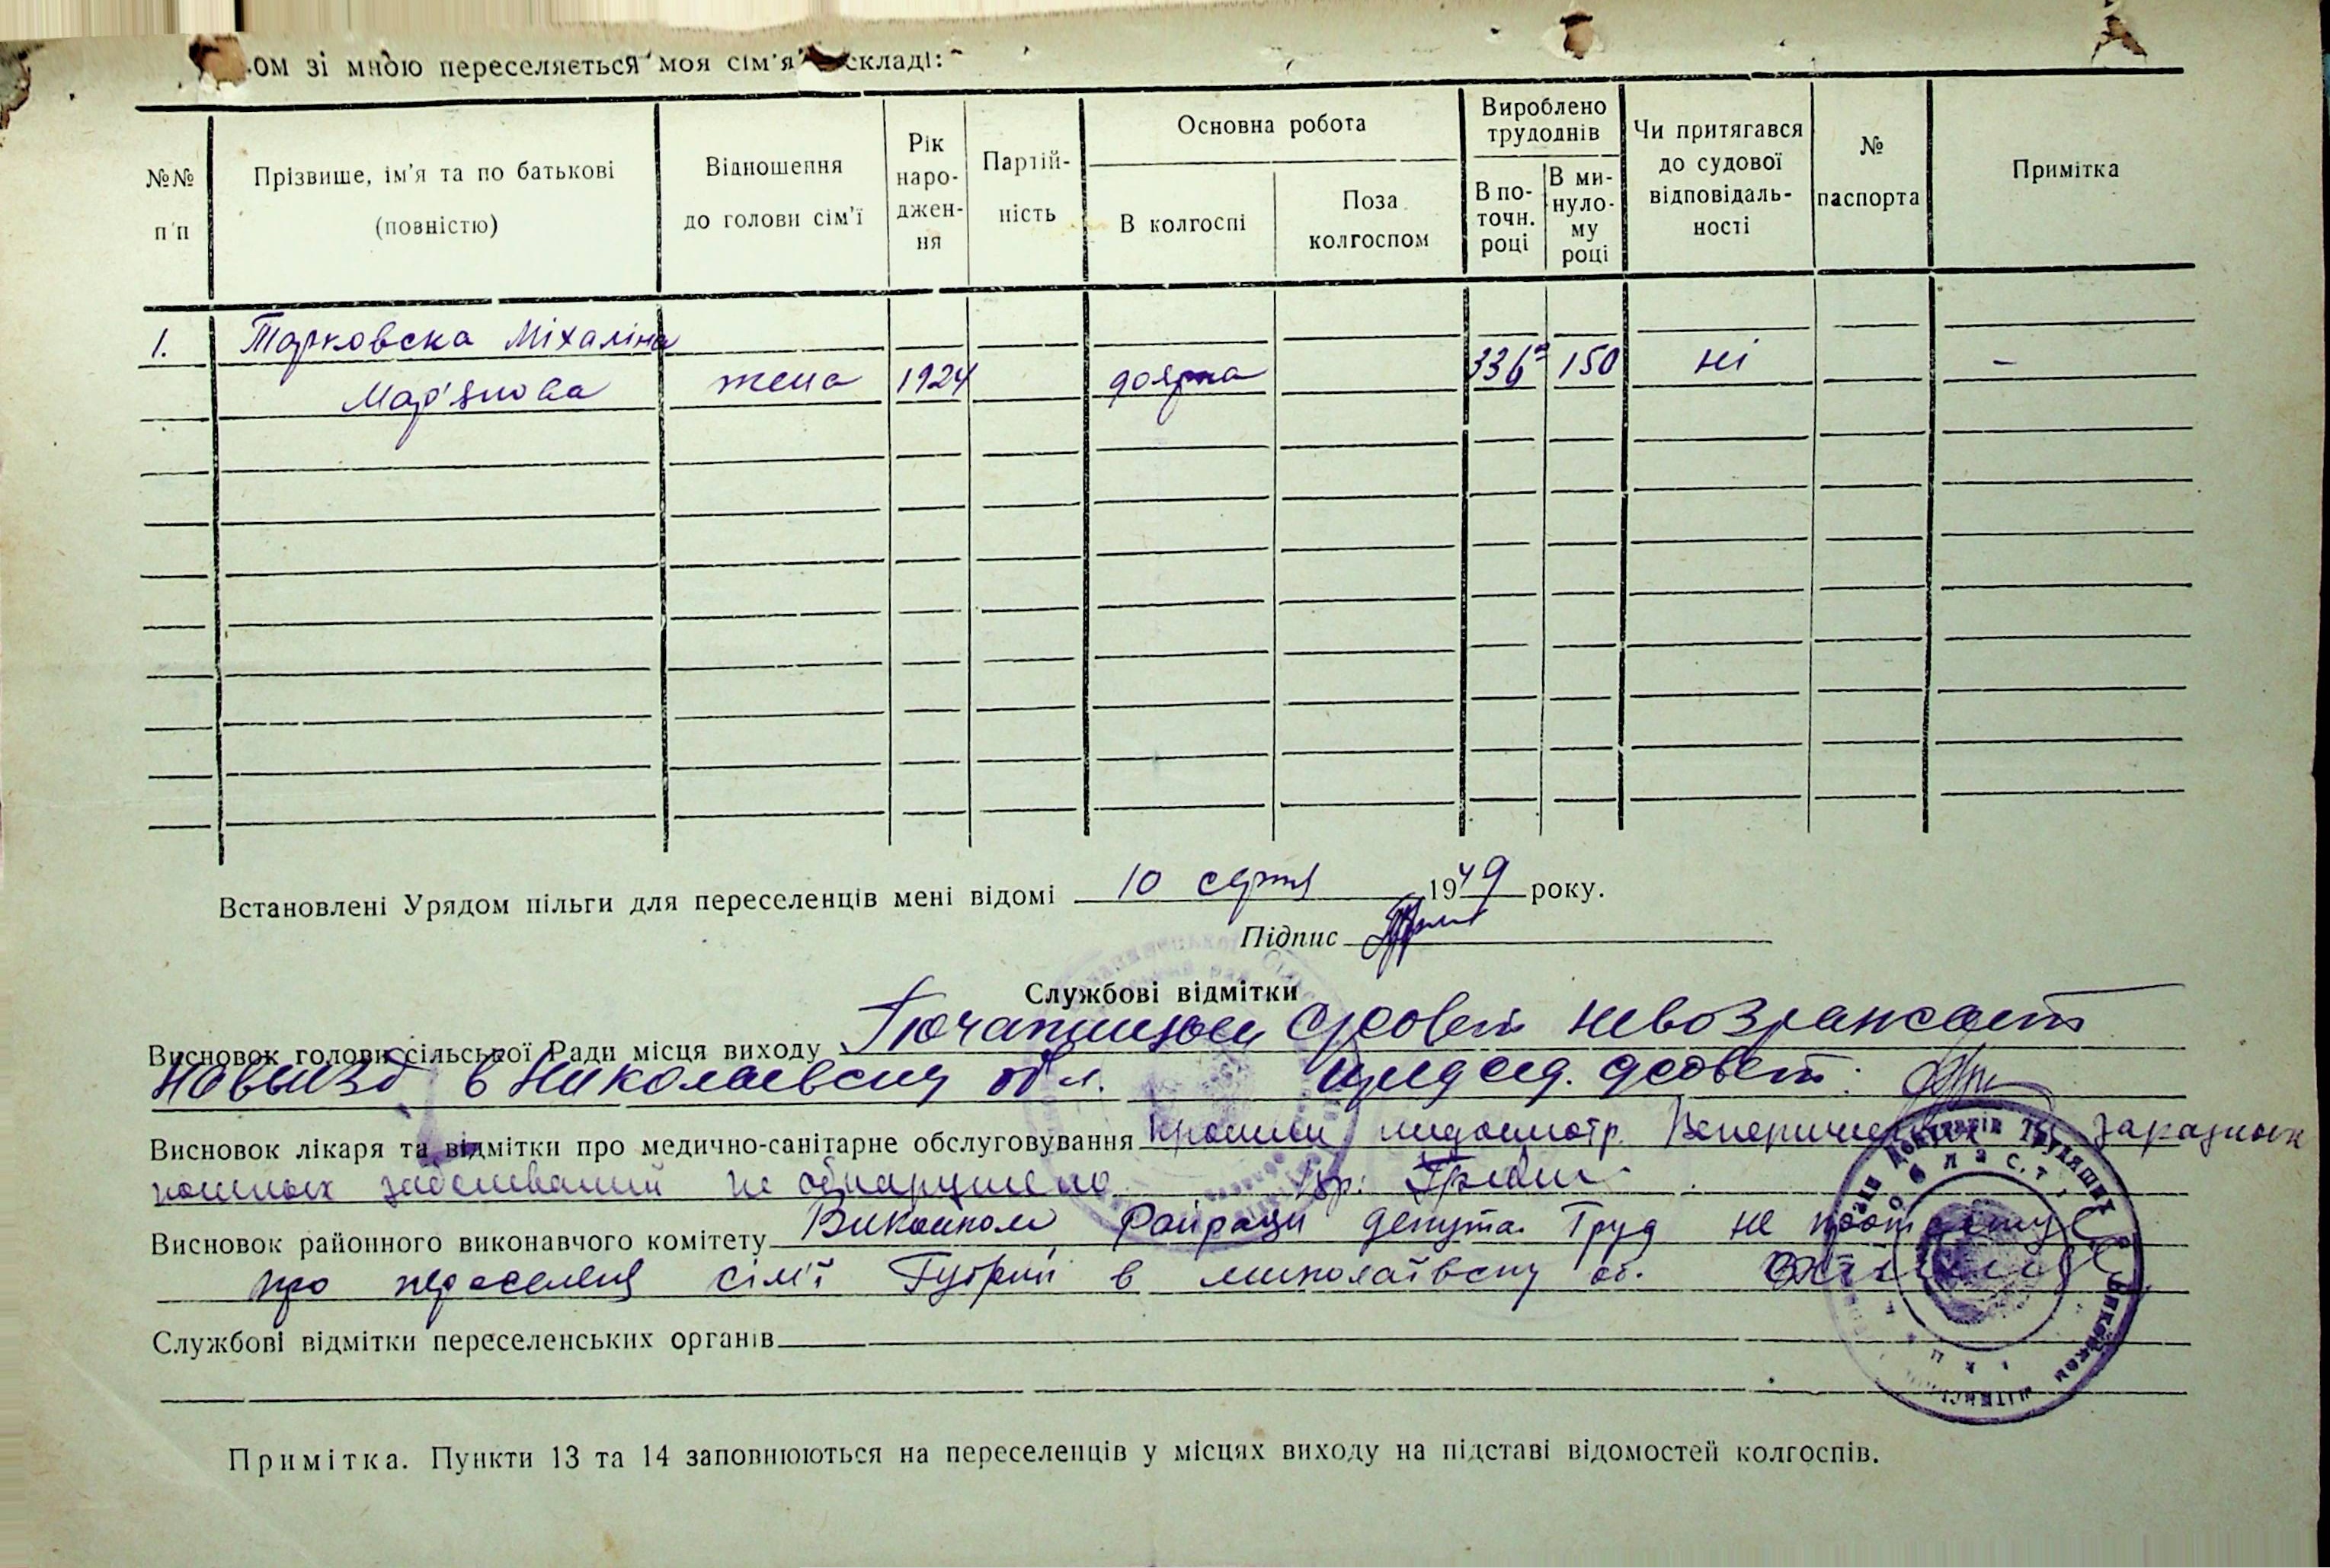 ом зі мною переселяється моя сім'я складі:
№№ п/п
Прізвище, ім'я та по батькові (повністю)
Відношення до голови сім'ї
Рік народження
Партійність
Основна робота
В колгоспі
Поза колгоспом
Вироблено трудоднів
В поточн. році
В минулому році
Чи притягався до судової відповідальності
№ паспорта
Примітка
1. Тарковска Міхаліна
Мар'янова жена 1924 доярка 336 150 ні –
Встановлені Урядом пільги для переселенців мені відомі 10 серпня 1949 року.
Підпис
Службові відмітки
Висновок голови сільської Ради місця виходу сдсовет невозражает
на выезд в Николаевску обл. председ. с/совета:
Висновок лікаря та відмітки про медично-санітарне обслуговування медосмотр. Венерических заразных
кожных заболеваний не обнаружено. Вр:
Висновок районного виконавчого комітету Виконком Райради депута. Труд не протестує
про переселення сім'ї в миколаївську об.
Службові відмітки переселенських органів
Примітка. Пункти 13 та 14 заповнюються на переселенців у місцях виходу на підставі відомостей колгоспів.